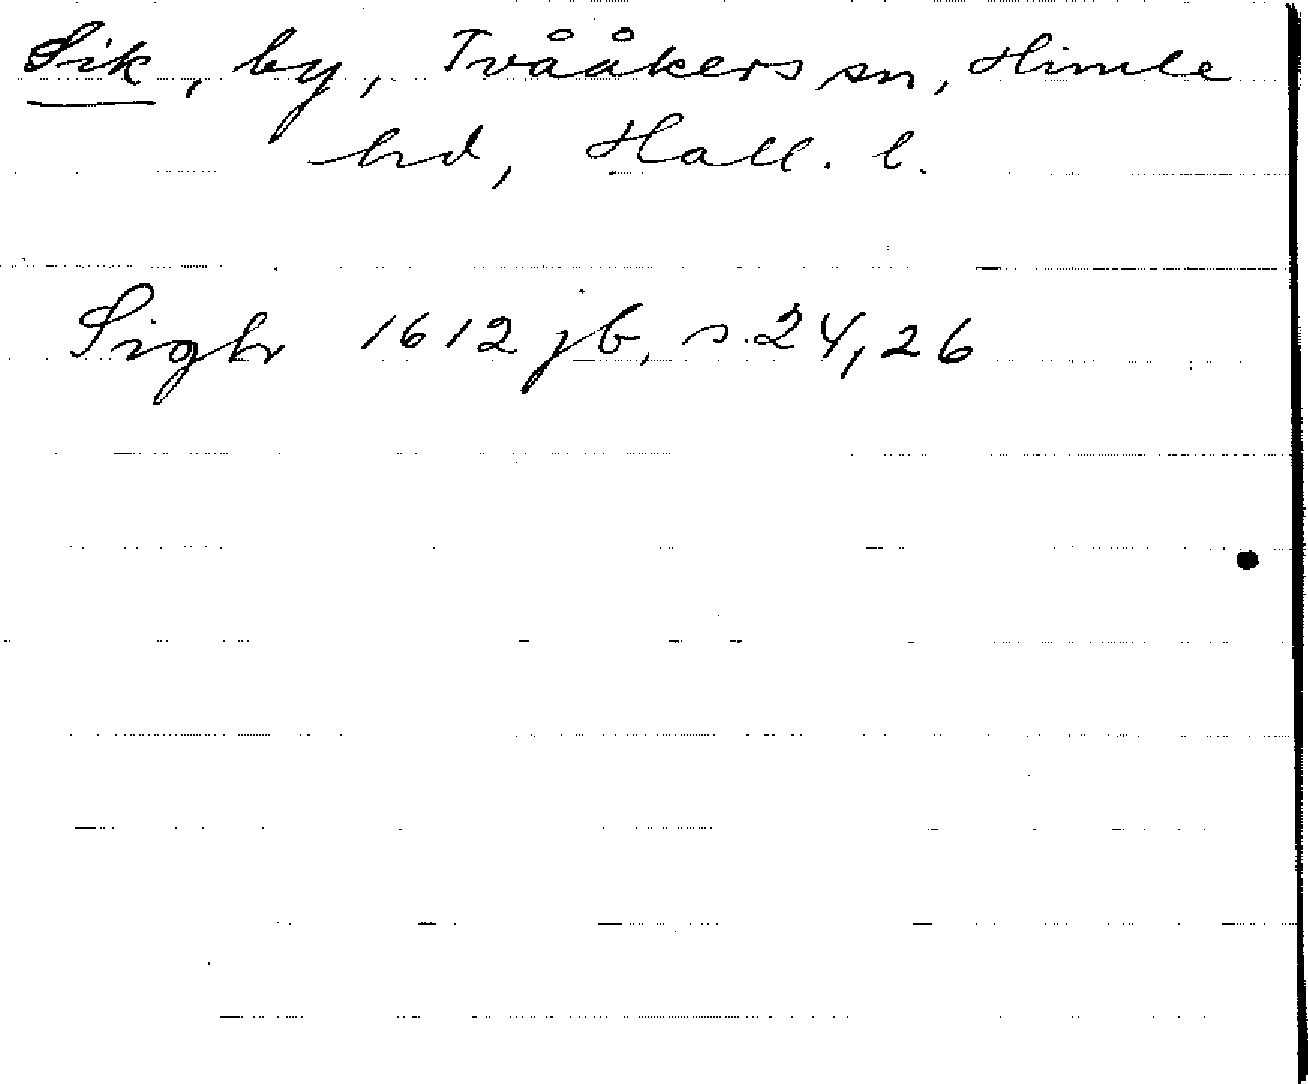 Sik, by, Tvååkers sn, Himle
hd, Hall. l.
Sigh 1612 jb, s. 24, 26